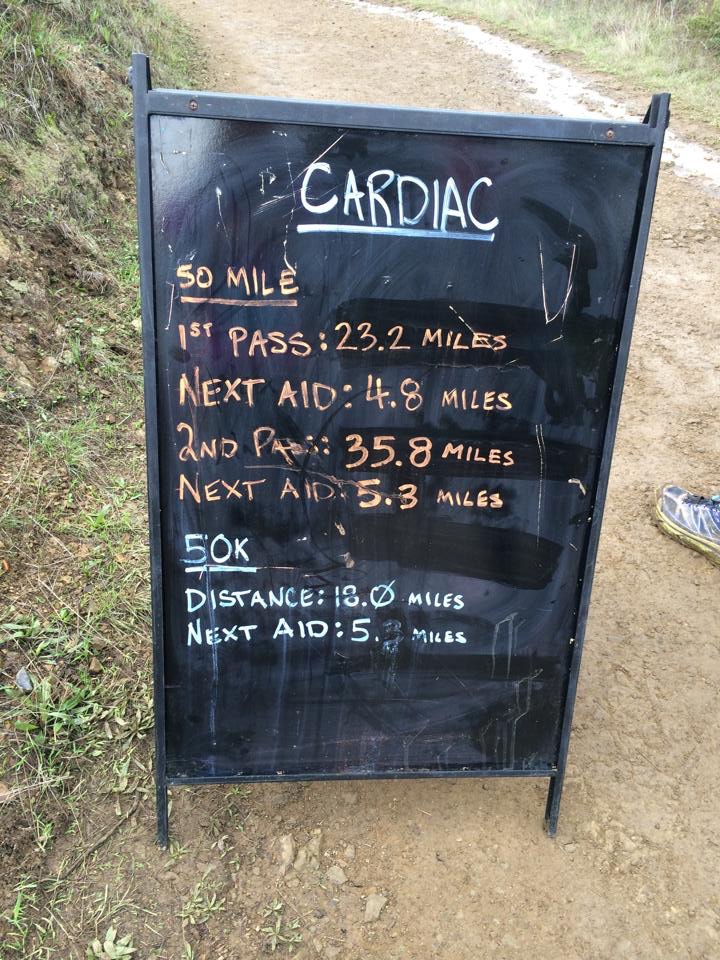 CARDIAC
50 MILE
1ST PASS: 23.2 MILES
NEXT AID: 4.8 MILES
2ND PASS: 35.8 MILES
NEXT AID: 5.3 MILES
50K
DISTANCE: 18.0 MILES
NEXT AID: 5.3 MILES